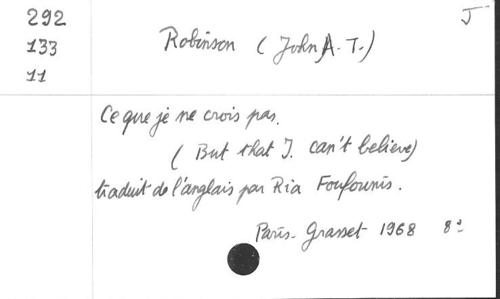 292
133
11
J
Robinson (John A. T.)
Ce que je ne crois pas.
(But that I. can't believe)
traduit de l'anglais par Ria Foufounis.
Paris - Grasset 1968 8°